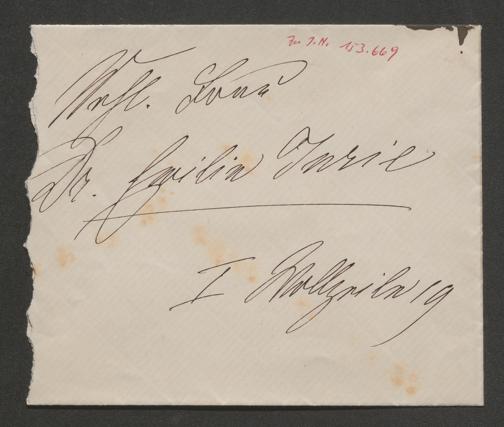 Zu I.N. 153.669
Wohl. Frau
Dr. Cecilie Turie
I Wollzeile 19